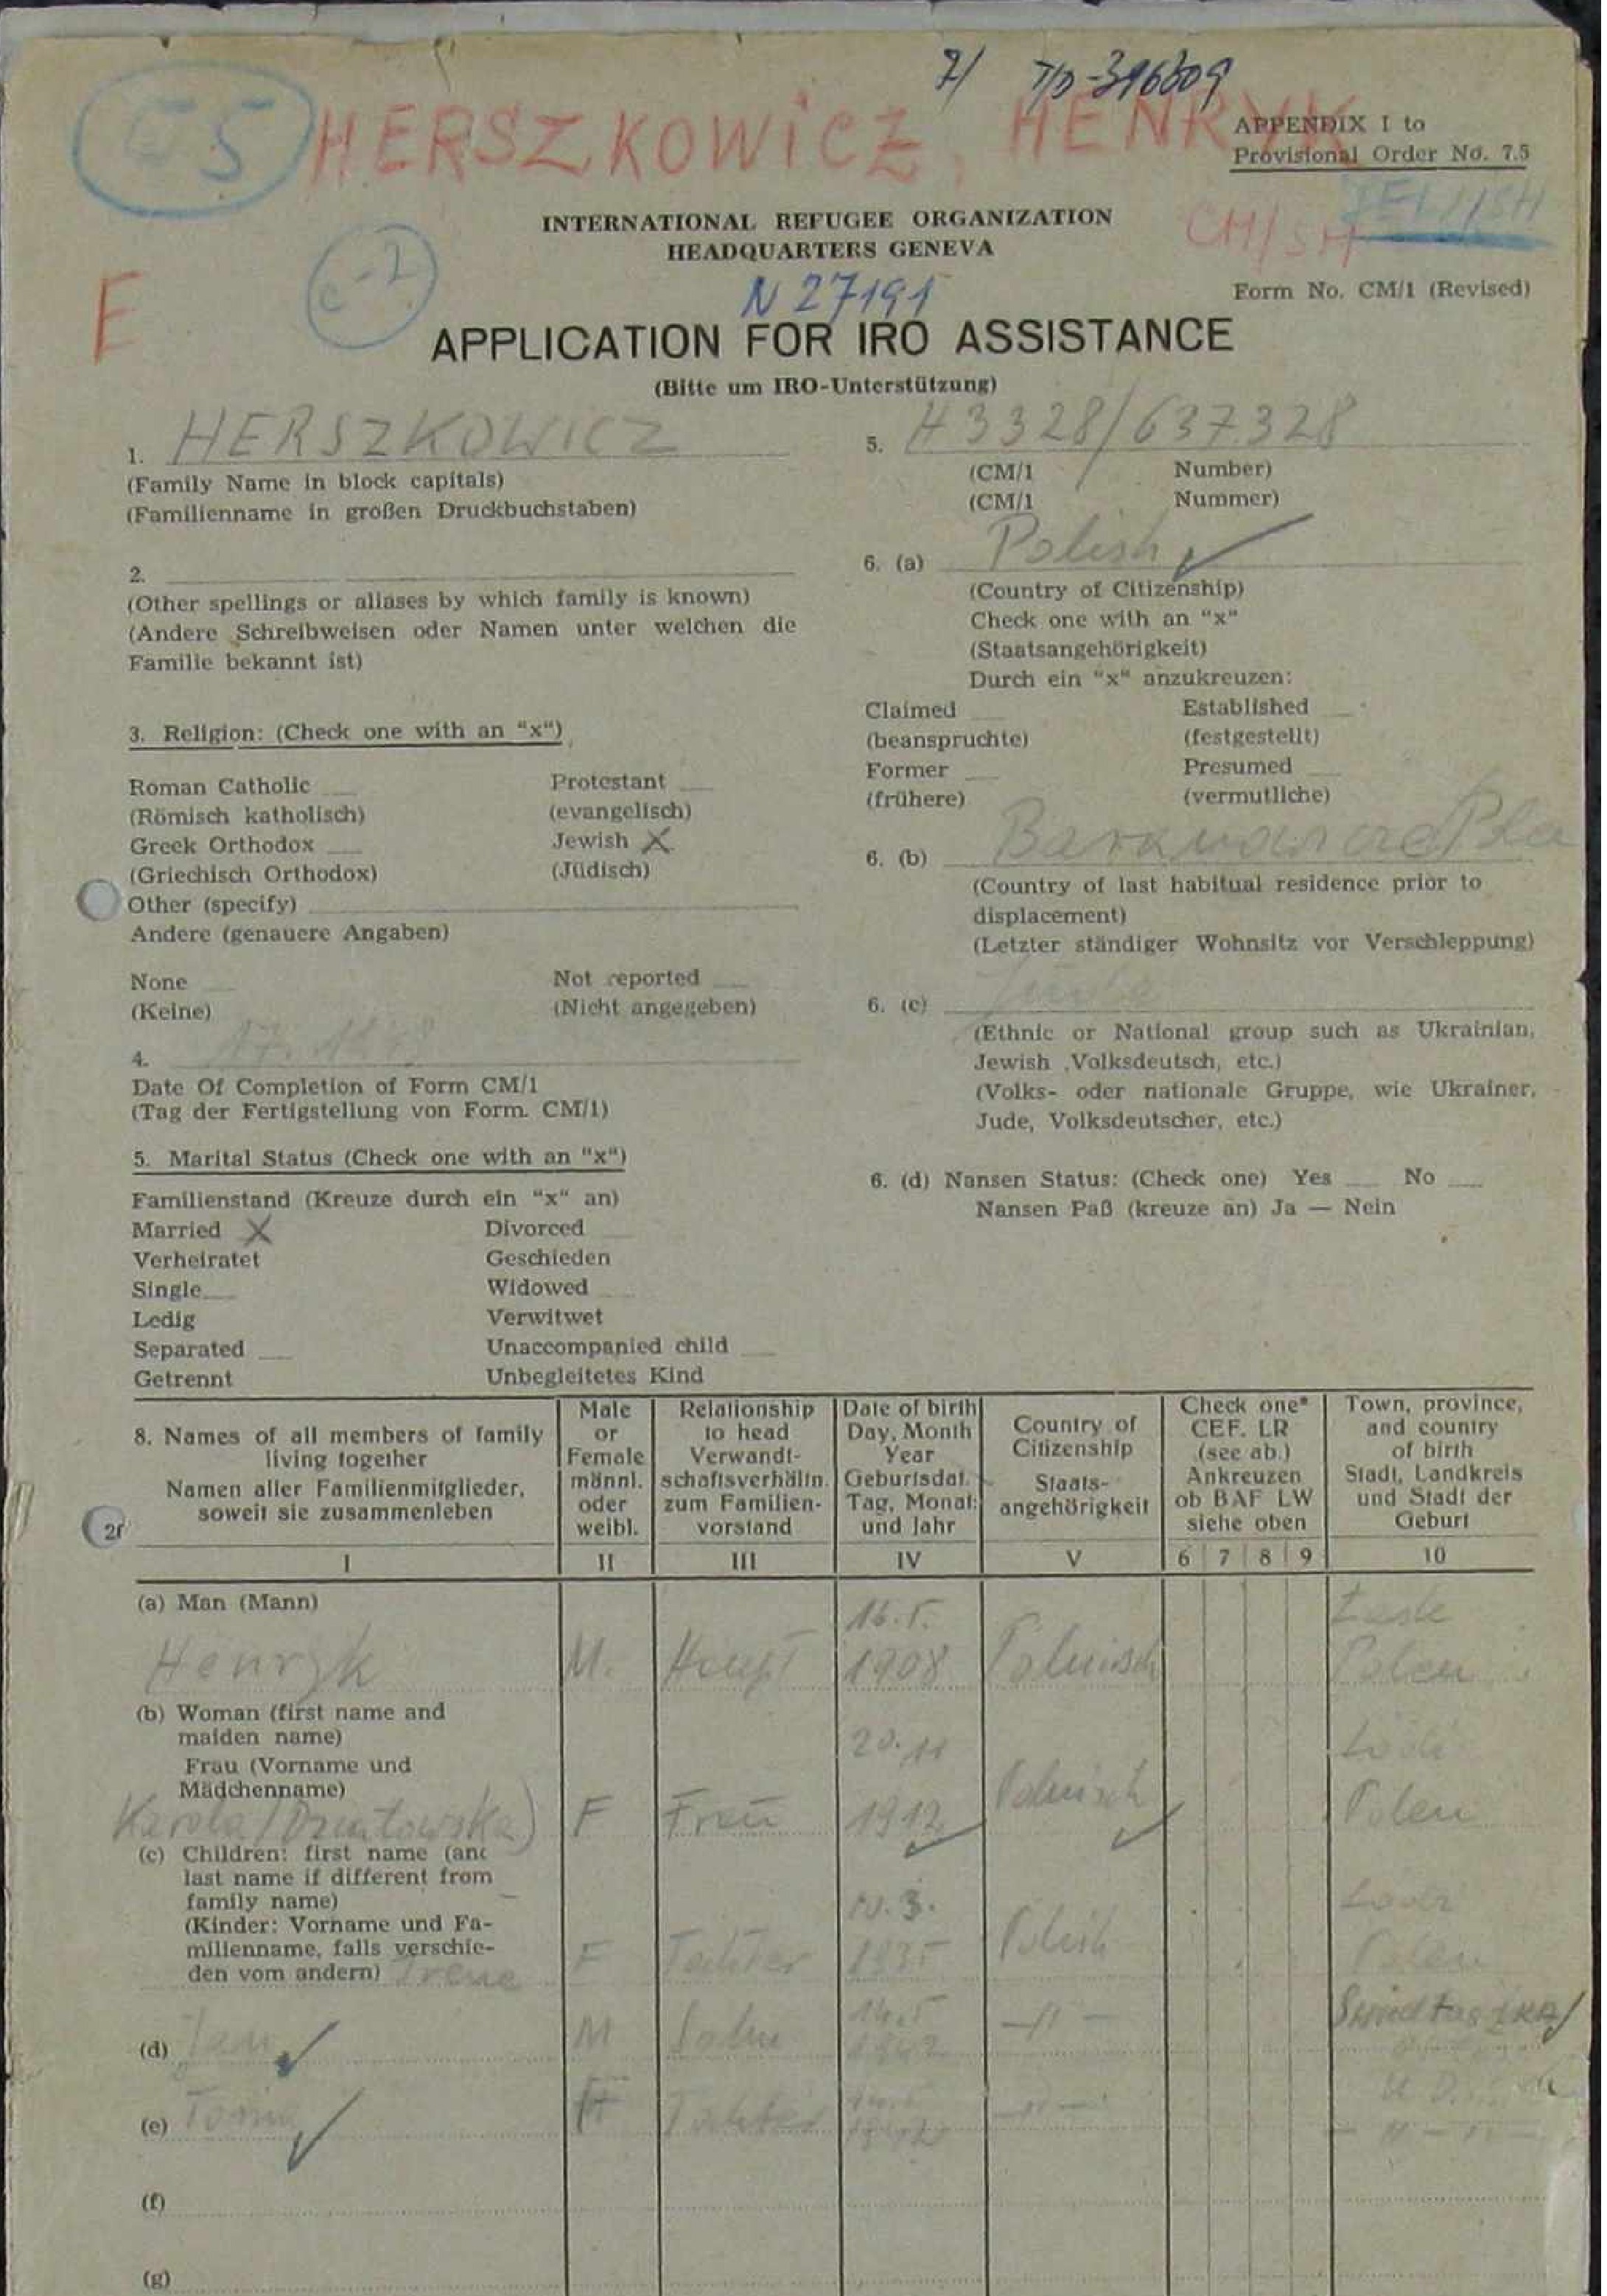 7/ T/D-316609
55 HERSZKOWICZ, HENRYK
APPENDIX I to
Provisional Order No. 7.5
INTERNATIONAL REFUGEE ORGANIZATION
HEADQUARTERS GENEVA
CM/SH
E
N 27191
Form No. CM/1 (Revised)
APPLICATION FOR IRO ASSISTANCE
(Bitte um IRO-Unterstützung)
1. HERSZKOWICZ
(Family Name in block capitals)
(Familienname in großen Druckbuchstaben)
2.
(Other spellings or aliases by which family is known)
(Andere Schreibweisen oder Namen unter welchen die
Familie bekannt ist)
3. Religion: (Check one with an "x")
Roman Catholic Protestant
(Römisch katholisch) (evangelisch)
Greek Orthodox Jewish X
(Griechisch Orthodox) (Jüdisch)
Other (specify)
Andere (genauere Angaben)
None Not reported
(Keine) (Nicht angegeben)
4.
Date Of Completion of Form CM/1
(Tag der Fertigstellung von Form. CM/1)
5. Marital Status (Check one with an "x")
Familienstand (Kreuze durch ein "x" an)
Married X Divorced
Verheiratet Geschieden
Single Widowed
Ledig Verwitwet
Separated Unaccompanied child
Getrennt Unbegleitetes Kind
5. 43328/637328
(CM/1 Number)
(CM/1 Nummer)
6. (a) Polish
(Country of Citizenship)
Check one with an "x"
(Staatsangehörigkeit)
Durch ein "x" anzukreuzen:
Claimed Established
(beanspruchte) (festgestellt)
Former Presumed
(frühere) (vermutliche)
6. (b)
(Country of last habitual residence prior to
displacement)
(Letzter ständiger Wohnsitz vor Verschleppung)
6. (c)
(Ethnic or National group such as Ukrainian,
Jewish ,Volksdeutsch, etc.)
(Volks- oder nationale Gruppe, wie Ukrainer,
Jude, Volksdeutscher, etc.)
6. (d) Nansen Status: (Check one) Yes No
Nansen Paß (kreuze an) Ja — Nein
8. Names of all members of family
living together
Namen aller Familienmitglieder,
soweit sie zusammenleben
Male
or
Female
männl.
oder
weibl.
Relationship
to head
Verwandt-
schaftsverhältn.
zum Familien-
vorstand
Date of birth
Day, Month
Year
Geburtsdat.
Tag, Monat:
und Jahr
Country of
Citizenship
Staats-
angehörigkeit
Check one*
CEF. LR
(see ab.)
Ankreuzen
ob BAF LW
siehe oben
Town, province,
and country
of birth
Stadt, Landkreis
und Stadt der
Geburt
I II III IV V 6 7 8 9 10
(a) Man (Mann)
16.5.
Henryk M. Haupt 1908 Polnisch Polen
(b) Woman (first name and
maiden name)
Frau (Vorname und
Mädchenname)
20.11
Karola F Frau 1912 Polnisch Polen
(c) Children: first name (and
last name if different from
family name)
(Kinder: Vorname und Fa-
milienname, falls verschie-
den vom andern) Irene F Tochter 1935 Polish Polen
(d) Jan M Sohn 14.5 —"—
(e) Tochter —"—
(f)
(g)